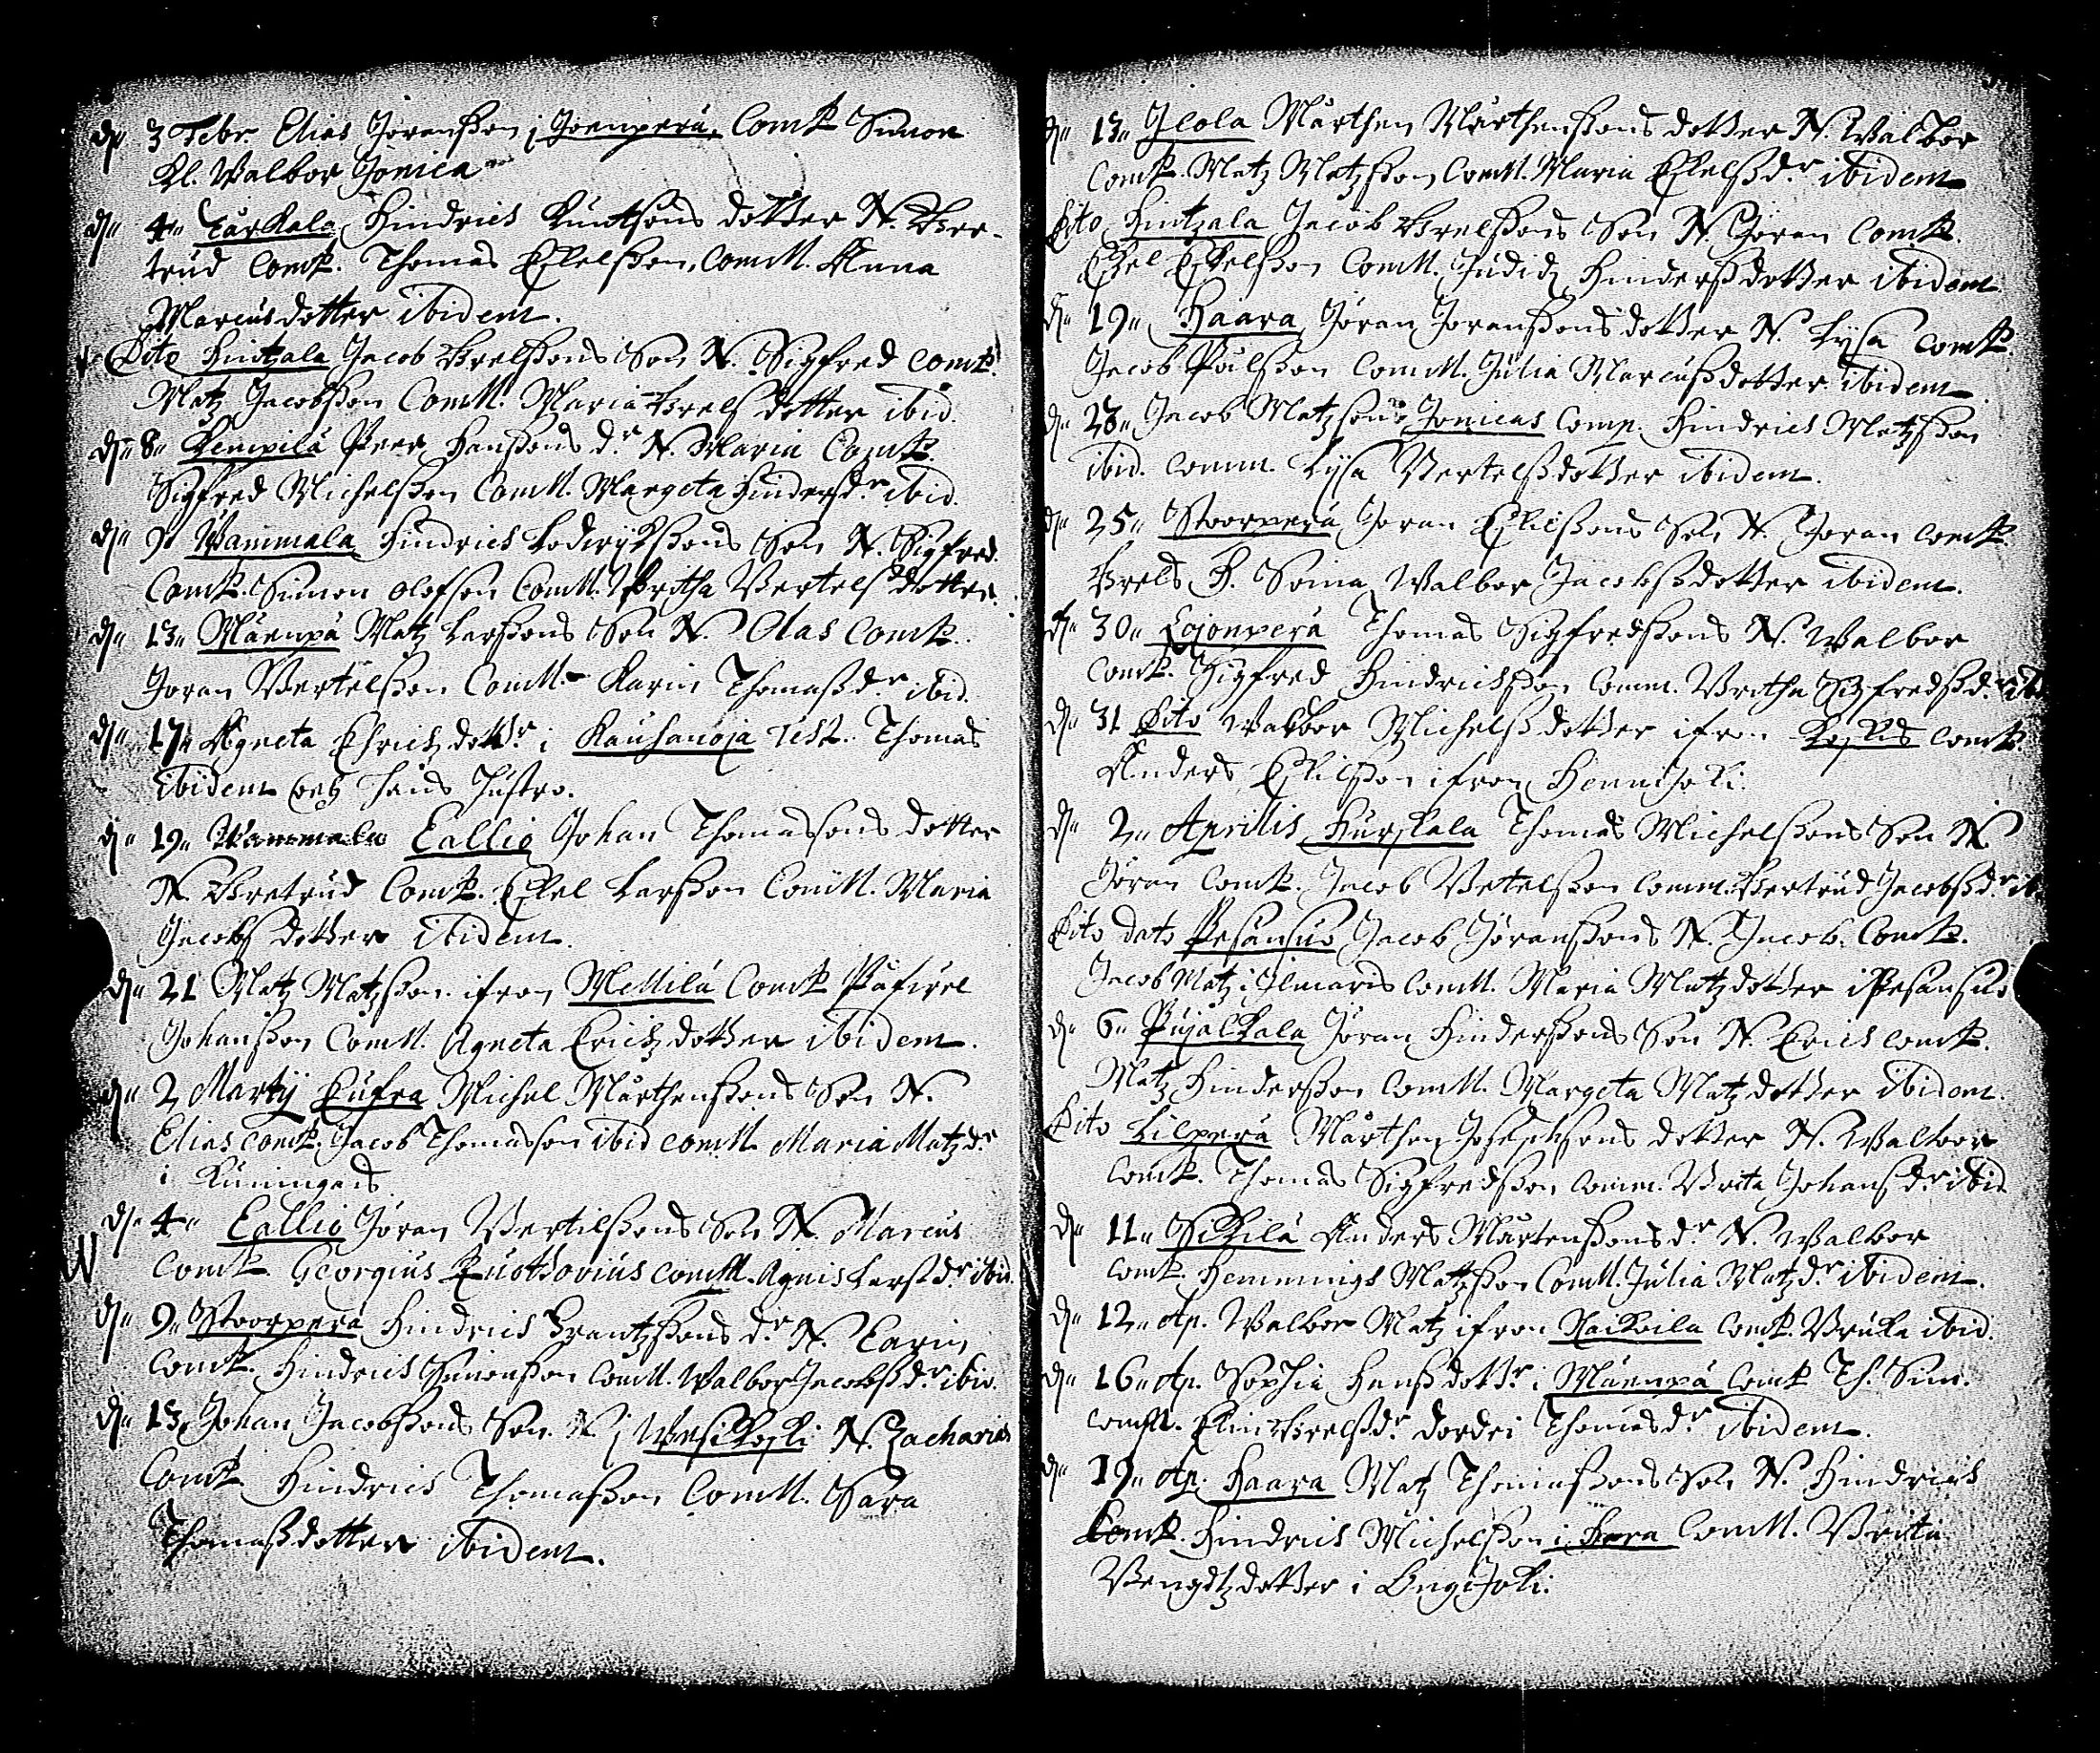 dn 3 Febr. Elias Joranßon i Joenperä. Comp Simon
Kl. Walbor Jonica
dn 4 Tarkala Hindrich Knutsons dotter N. Ger-
trud Comp. Thomas Eskelßon, ComM. Anna
Marcusdotter ibidem.
Dito Hintzala Jacob Grelßons Son N. Sigfred Comp.
Matz Jacobßon ComM. Maria Grels dotter ibid.
dn 8 Kempilä Peer Hanßons dr N. Maria Comp.
Sigfred Michelßon ComM. Margeta Hindersdr ibid.
dn 9 Wammala Hindrich Lodwijkßons Son N. Sigfred.
Comp. Simon olofson ComM. Britha Bertels dotter.
dn 13 Mäenpä Matz Larßons Son N. Olas Comp.
Joran Bertelßon ComM. Karin Thomaßdr ibid.
dn 17 Agneta Erichz dottr i Kauhanoja Test. Thomas
ibidem och hans hustro.
dn 19 Wammala Callio Johan Thomassons dotter
N. Gretrud Comp. Eskel Larßon ComM. Maria
Jacobs dotter ibidem.
dn 21 Matz Matzßon ifron Mellilä Comp Påfwel
Johanßon ComM. Agneta Erichz dotter ibidem.
dn 2 Martij Cufra Michel Mårthenßons Son N.
Elias Comp. Jacob Thomasson ibid comM. Maria Matzdr
i Kuningas
dn 4 Callio Jöran Bertilßons Son N. Marcus
Comp. Georgius comM. Agnis Larßdr ibid.
dn 9 Stoorperä Hindrich Frantzßons dr N. Carin
Comp. Hindrich Simonßon ComM. Walbor Jacobßdr ibid.
dn 13 Johan Jacobßons Son N. i Wesikoski N. Zacharias
Comp Hindrich Thomaßon ComM. Sara
Thomaßdotter ibidem.
dn 13 Ilola Mårthen Mårthenßons dotter N. Walbor
Comp. Matz Matzßon ComM. Maria Eskelßdr ibidem
Dito Hintzala Jacob Grelßons Son N. Jöran Comp.
Eskel Eskelßon ComM. Judid Hinderßdotter ibidem
dn 19 Haara Jöran Joranßons dotter N. Lysa Comp.
Jacob Pålßon ComM. Julia Marcußdotter ibidem
dn 23 Jacob Matzsons Jonicas Comp. Hindrich Matzßon
ibid. comm. Lysa Bertelßdotter ibidem.
dn 25 Stoorperä Joran Eskilßons Son N. Joran Comp.
Grels H. Soina Walbor Jacobßdotter ibidem.
dn 30 Lojonperä Thomas Sigfredßons N. Walbor
Comp. Sigfred Hindrichßon Comm. Britha Sigfredßdr ibi
dn 31 Dito Walbor Michelßdotter ifron Koskis Comp.
Anders Eskilßon ifron Hennijoki.
dn 2 Aprillis Hurskala Thomas Michelßons Son N.
Jöran Comp. Jacob Betelßon Comm. Gertrud Jacobßdr ib
Dito dato Pesänsuo Jacob Jöranßons N. Jacob. Comp.
Jacob Matz i Ilmaris ComM. Maria Matzdotter i Pesänsuo
dn 6 Pujalkala Jöran Hinderßons Son N. Erich Comp.
Matz Hinderßon ComM. Margeta Matzdotter ibidem.
Dito Lilperä Mårthen Josephsons dotter N. Walbor
Comp. Thomas Sigfredßon Comm. Brita Johansdr ibid
dn 11 Sikilä Anders Mårtenßons dr N. Walbor
Comp. Hemmings Matzßon ComM. Julia Matzdr ibidem.
dn 12 Ap. Walbor Matz ifron Raikoila Comp. Bruka ibid.
dn 16 Ap. Sophia Hanßdottr i Mäenpä Comp Th. Sim.
comM. Elin Grelßdr dordei Thomasdr ibidem.
dn 19 Ap. Haara Matz Thomaßons Son N. Hindrich
Comp. Hindrich Michelßon i Hara ComM. Brita
Bengtzdotter i Ongijoki.